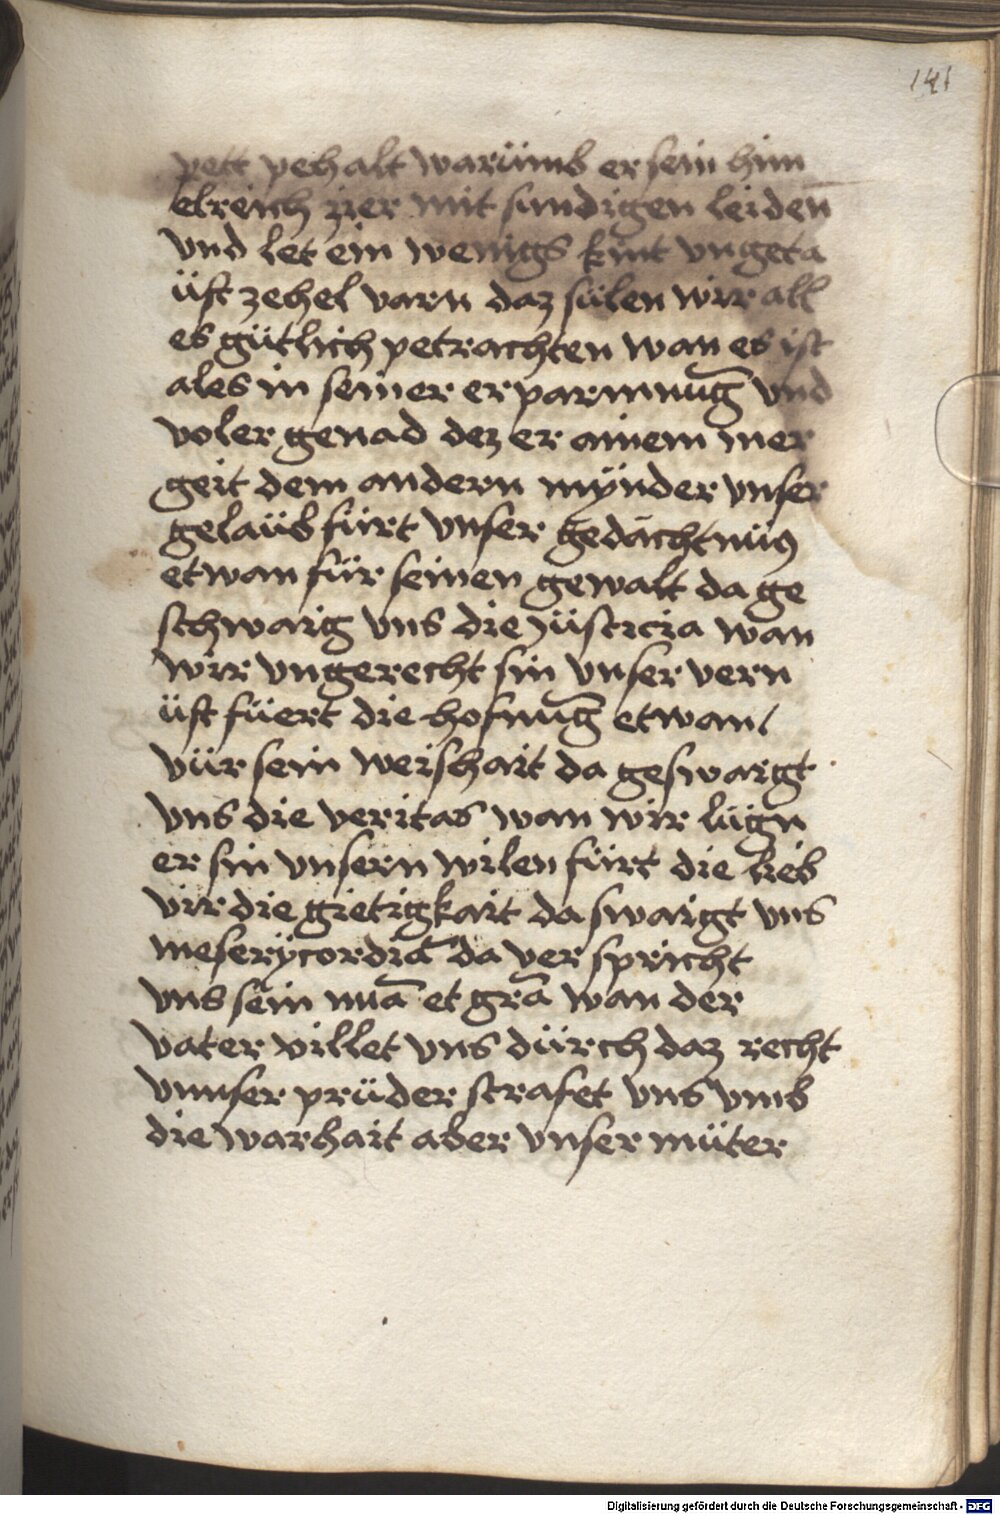 141
pett pehalt warümb er sein him
elreich zier mit sundigen leiden
vnd let ein wenigs kint vngeta
üft ze hel varn daz sülen wir all
es gütlich petrachten wan es ist
ales in seiner erparmnug̅ vnd
voler genad dez er ainem mer
geit dem andern mÿnder vnser
gelaüb fürt vnser gedächtnüs
etwan für seinen gewalt da ge
schwaig vns die Jüsticia wan
wir vngerecht sin vnser vern
üft füert die hofnug̅ etwan
vür sein weishait da geswaigt
vns die veritas wan wir lügn
er sin vnsern wilen fürt die lieb
vir die gietigkait da swaigt vns
meserÿcordia̅ da verspricht
vns sein mi̅a et gra̅ wan der
vater villet vns dürch daz recht
vnnser prüder strafet vns vmb
die warhait aber vnser müter
Digitalisierung gefördert durch die Deutsche Forschungsgemeinschaft - DFG